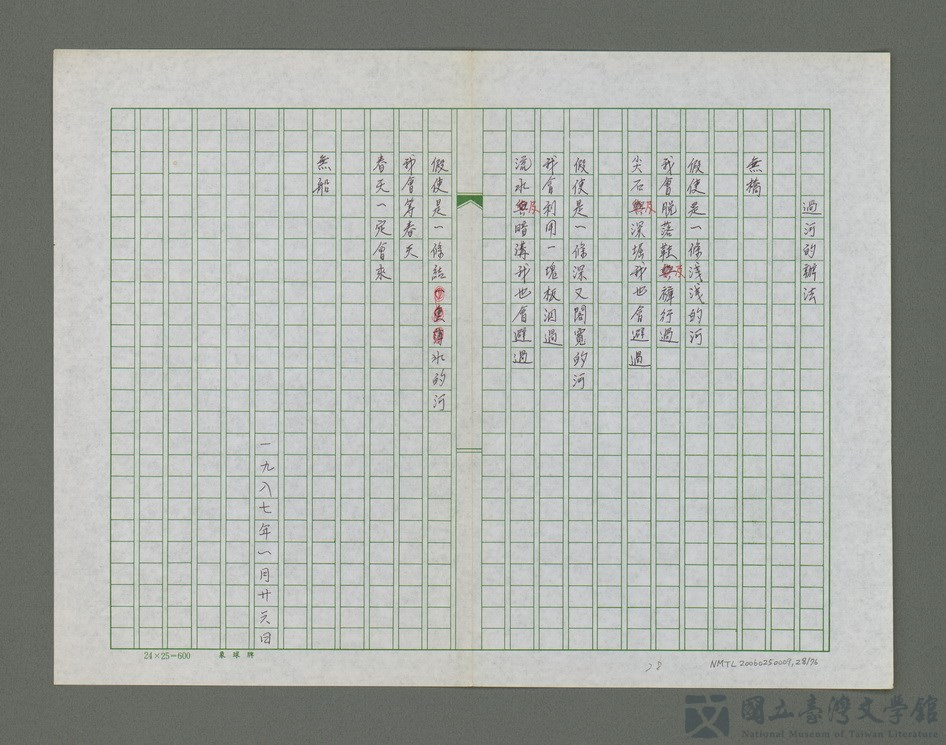 過河的辦法
無橋
假使是一條淺淺的河
我會脫落鞋及褲行過
尖石及深堀我也會避過
假使是一條深又闊寬的河
我會利用一塊板泅過
流水及暗溝我也會避過
假使是一條結冰的河
我會等春天
春天一定會來
無船
一九八七年一月廿六日
24×25=600 菓球牌
28
NMTL20060250009,28/76
國立臺灣文學館
National Museum of Taiwan Literature